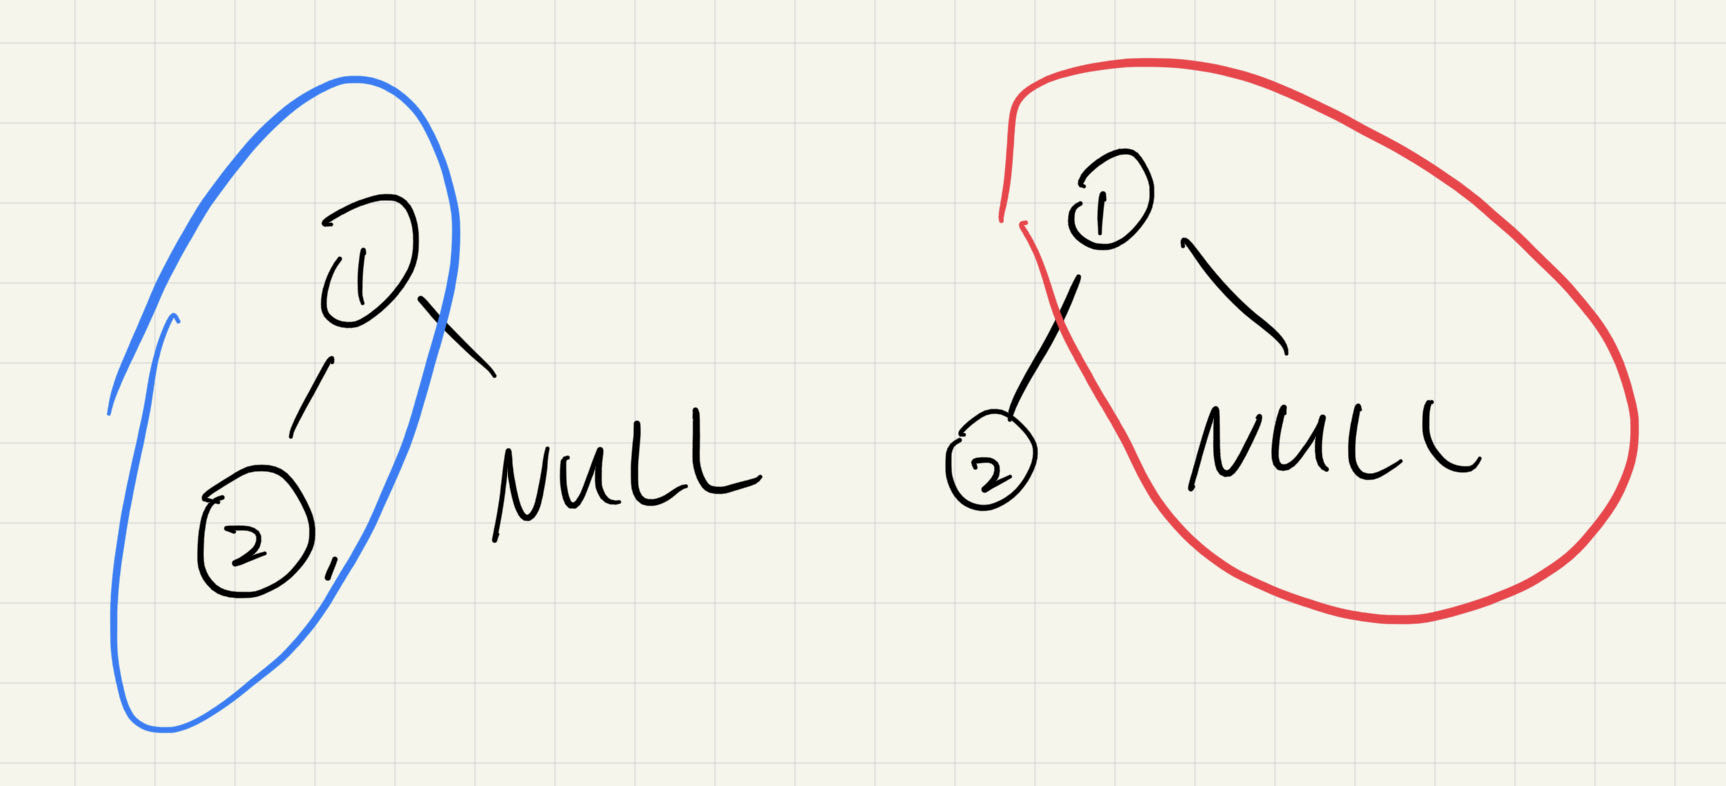 1
1
2
NULL
2
NULL